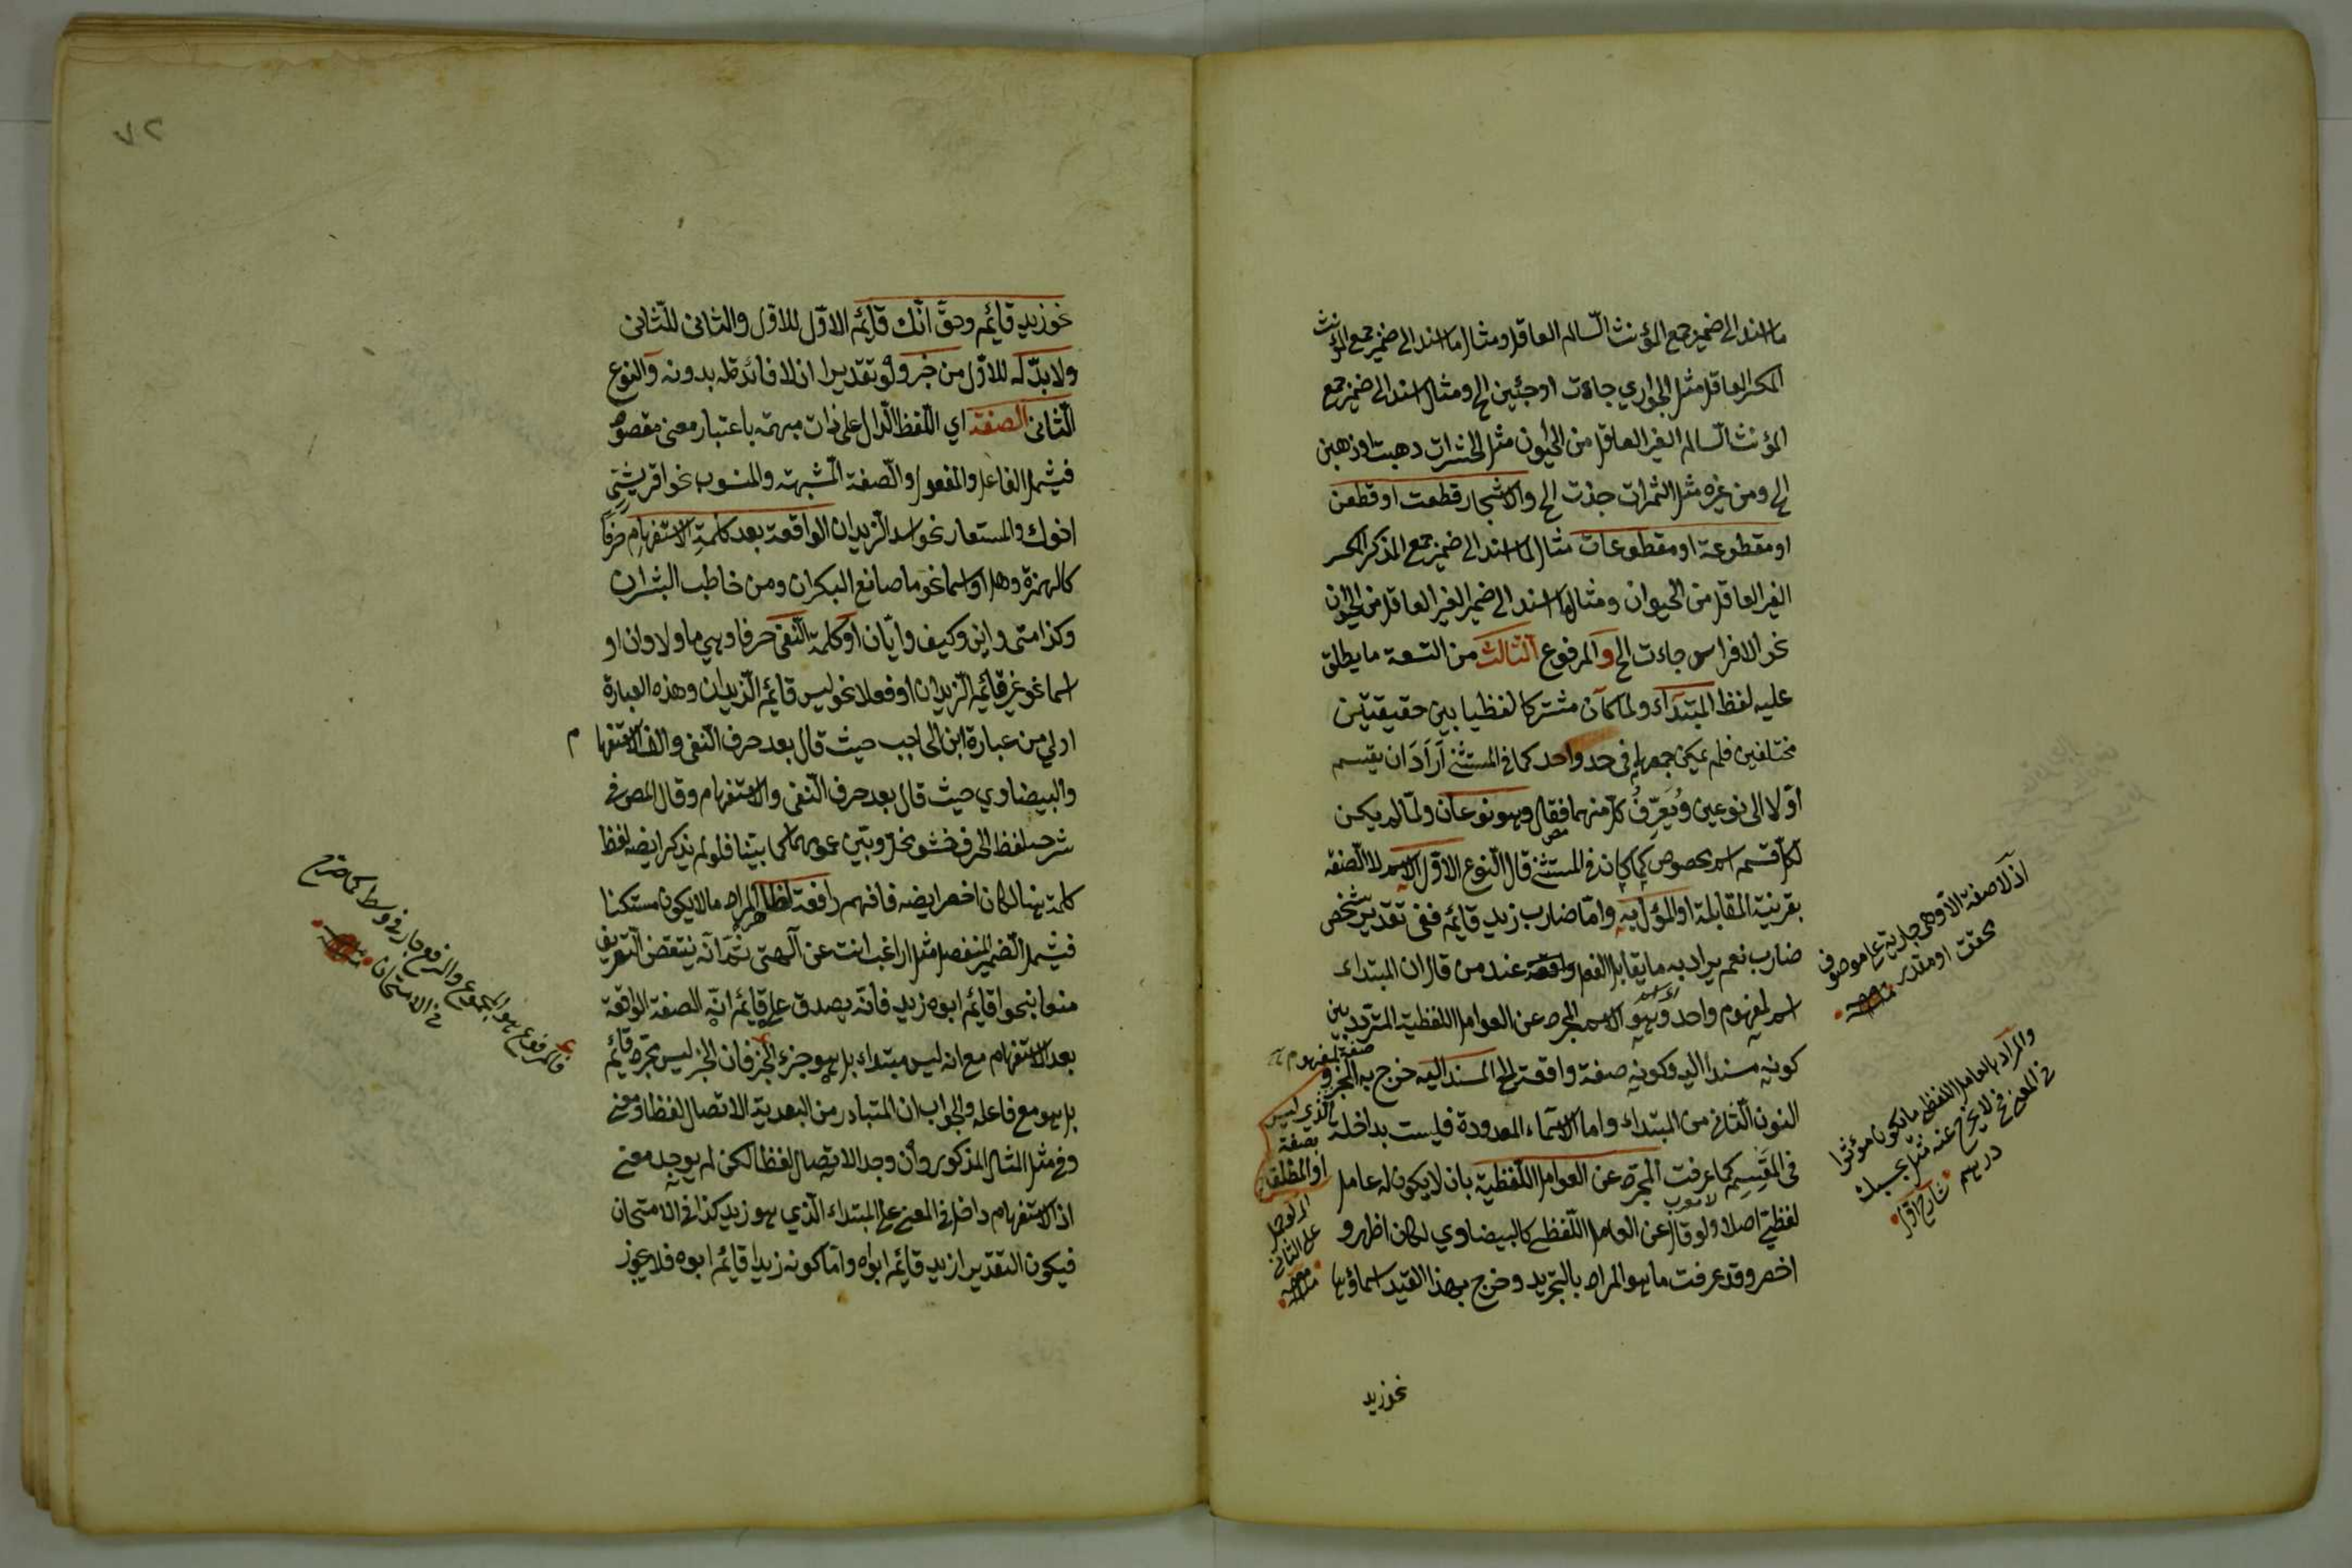 ما اسند الى ضمير جمع المؤنث السالم العاقل ومثال ما اسند الى ضمير جمع المؤنث
المكسر العاقل مثل الجواري جاءت او جئين الخ ومثال ما اسند الى ضمير جمع
المؤنث السالم الغير العاقل من الحيوان مثل الحشرات ذهبت او ذهبن
الخ ومن غيره مثل الثمرات جذت الخ والاشجار قطعت او قطعن
او مقطوعة او مقطوعات مثال لما اسند الى ضمير جمع المذكر المكسر
الغير العاقل من الحيوان ومثال ما اسند الى ضمير الغير العاقل من الحيوان
نحو الافراس جاءت الخ والمرفوع الثالث من التسعة ما يطلق
عليه لفظ المبتداء ولما كان مشتركا لفظيا بين حقيقيتين
مختلفين فلم يمكن جمعهما في حد واحد كما في المستثنى اراد ان يقسم
اولا الى نوعين ويعرف كل منهما فقال وهو نوعان ولما لم يكن
لكل قسم اسم مخصوص كما كان في المستثنى قال النوع الاول الاسم لا الصفة
بقرينة المقابلة او المؤل به واما ضارب زيد قائم ففى تقدير شخص
ضارب نعم يراد به ما يقابل الفعل عند من قال ان المبتداء
اسم لمفهوم واحد وهو الاسم المجرد عن العوامل اللفظية المتردد بين
كونه مسندا اليه وكونه صفة واقعة الخ المسند اليه خرج به الخبر و
النوع الثانى من المبتداء واما الاسماء المعدودة فليست بداخلة
فى المقسم كما عرفت المجرد عن العوامل اللفظية بان لا يكون له عامل
لفظي اصلا ولو قال عن العامل اللفظي كالبيضاوي لكان اظهر و
اخصر وقد عرفت ما هو المراد بالتجريد وخرج بهذا القيد اسماؤها
نحو زيد
صفة لمفهوم
الذي ليس
بصفة
او المطلق
على الثانى
منه
اذ لا صفة الا وهى جارية على موصوف
محقق او مقدر منه
والمراد بالعامل اللفظي ما يكون مؤثرا
في المعنى فلا يخرج عنه مثل بحسبك
درهم
٧٢
نحو زيد قائم وحق انك قائم الاول للاول والثانى للثانى
ولا بد له للاول من خبر ولو تقديرا اذ لا فائدة له بدونه والنوع
الثانى الصفة اي اللفظ الدال على ذات مبهمة باعتبار معنى مقصود
فيشمل الفاعل والمفعول والصفة المشبهة والمنسوب نحو اقريشي
اخوك والمستعار نحو اسد الزيدان الواقعة بعد كلمة الاستفهام حرفا
كالهمزة وهل او اسما نحو ما صانع البكران ومن خاطب البشران
وكذا متى واين وكيف وايان او كلمة النفى حرفا وهي ما ولا وان او
اسما نحو غير قائم الزيدان او فعلا نحو ليس قائم الزيدان وهذه العبارة
اولي من عبارة ابن الحاجب حيث قال بعد حرف النفى والف الاستفهام
والبيضاوي حيث قال بعد حرف النفى والاستفهام وقال المص في
شرحه لفظ الحرف حشو مخل وبين عمومهما كما بينا فلو لم يذكر ايضا لفظ
كلمة هنا لكان اخصر ايضا فافهم رافعة لظاهر المراد ما لا يكون مستكنا
فيشمل الضمير المنفصل مثل اراغب انت عن آلهتى ثم انه ينتقض التعريف
منعا بنحو اقائم ابوه زيد فانه يصدق على قائم انه الصفة الواقعة
بعد الاستفهام مع انه ليس مبتداء بل هو جزء الخبر فان الخبر ليس مجرد قائم
بل هو مع فاعله والجواب ان المتبادر من البعدية الاتصال لفظا ومعنى
وفي مثل المثال المذكور وان وجد الاتصال لفظا لكن لم يوجد معنى
اذ الاستفهام داخل في المعنى على المبتداء الذي هو زيد كذا في الامتحان
فيكون التقدير ازيد قائم ابوه واما كونه زيد اقائم ابوه فلا يجوز
فالمرفوع هو المجموع والرفع جار في وسط كما صرح
في الامتحان منه